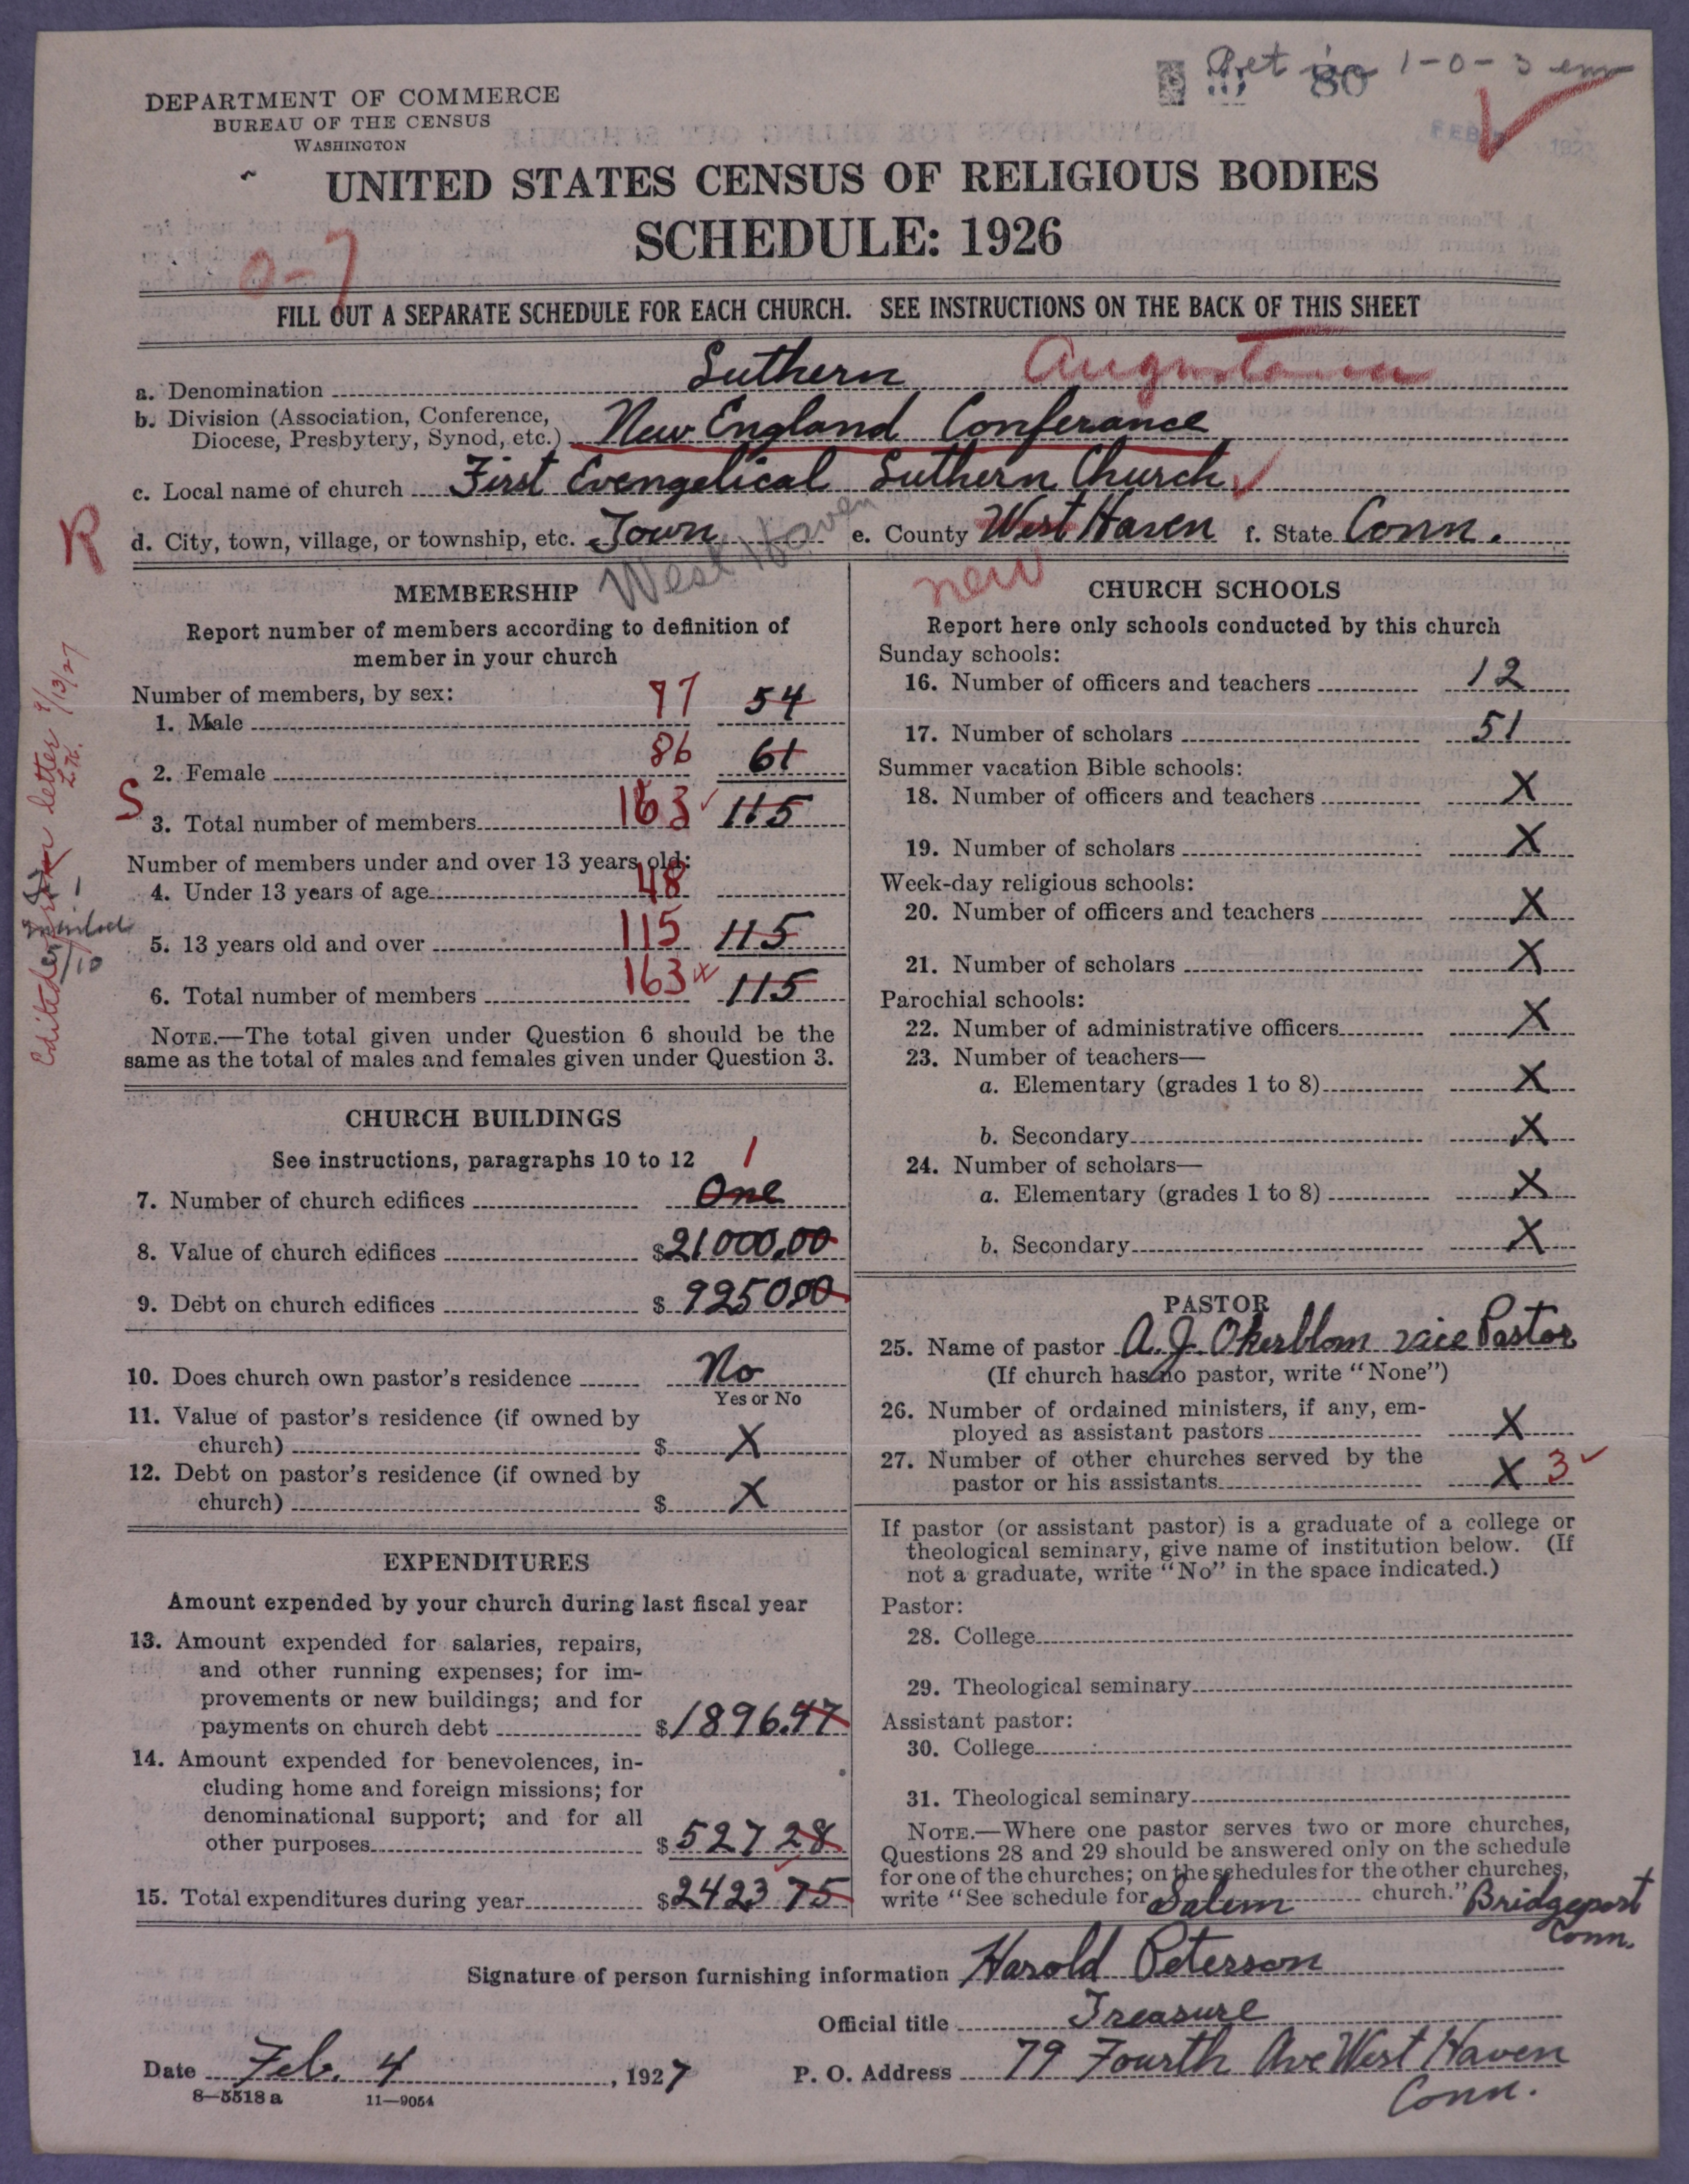 Ret in 1-0-3 em
80
FEB 192
DEPARTMENT OF COMMERCE
BUREAU OF THE CENSUS
WASHINGTON
UNITED STATES CENSUS OF RELIGIOUS BODIES
SCHEDULE: 1926
0-7
FILL OUT A SEPARATE SCHEDULE FOR EACH CHURCH. SEE INSTRUCTIONS ON THE BACK OF THIS SHEET
a. Denomination Luthern Augustana
b. Division (Association, Conference, Diocese, Presbytery, Synod, etc.) New England Conferance
c. Local name of church First Evengelical Luthern Church
R
d. City, town, village, or township, etc. Town West Haven e. County West Haven f. State Conn.
new
MEMBERSHIP
Report number of members according to definition of
member in your church
Number of members, by sex:
1. Male 77 54
2. Female 86 61
S
3. Total number of members 163 115
Number of members under and over 13 years old:
4. Under 13 years of age 48
5. 13 years old and over 115 115
6. Total number of members 163 115
NOTE.—The total given under Question 6 should be the
same as the total of males and females given under Question 3.
Edited from letter 9/13/27
CHURCH BUILDINGS
See instructions, paragraphs 10 to 12
7. Number of church edifices One 1
8. Value of church edifices $21000.00
9. Debt on church edifices $9250.00
10. Does church own pastor's residence No
Yes or No
11. Value of pastor's residence (if owned by
church) $ X
12. Debt on pastor's residence (if owned by
church) $ X
EXPENDITURES
Amount expended by your church during last fiscal year
13. Amount expended for salaries, repairs,
and other running expenses; for im-
provements or new buildings; and for
payments on church debt $1896.47
14. Amount expended for benevolences, in-
cluding home and foreign missions; for
denominational support; and for all
other purposes $527 28
15. Total expenditures during year $2423 75
CHURCH SCHOOLS
Report here only schools conducted by this church
Sunday schools:
16. Number of officers and teachers 12
17. Number of scholars 51
Summer vacation Bible schools:
18. Number of officers and teachers X
19. Number of scholars X
Week-day religious schools:
20. Number of officers and teachers X
21. Number of scholars X
Parochial schools:
22. Number of administrative officers X
23. Number of teachers—
a. Elementary (grades 1 to 8) X
b. Secondary X
24. Number of scholars—
a. Elementary (grades 1 to 8) X
b. Secondary X
PASTOR
25. Name of pastor A. J. Okerblom vice Pastor
(If church has no pastor, write "None")
26. Number of ordained ministers, if any, em-
ployed as assistant pastors X
27. Number of other churches served by the
pastor or his assistants X 3
If pastor (or assistant pastor) is a graduate of a college or
theological seminary, give name of institution below. (If
not a graduate, write "No" in the space indicated.)
Pastor:
28. College
29. Theological seminary
Assistant pastor:
30. College
31. Theological seminary
NOTE.—Where one pastor serves two or more churches,
Questions 28 and 29 should be answered only on the schedule
for one of the churches; on the schedules for the other churches,
write "See schedule for Salem church." Bridgeport
Conn.
Signature of person furnishing information Harold Peterson
Official title Treasure
Date Feb. 4, 1927 P. O. Address 79 Fourth Ave West Haven
Conn.
8—5518 a 11—9054